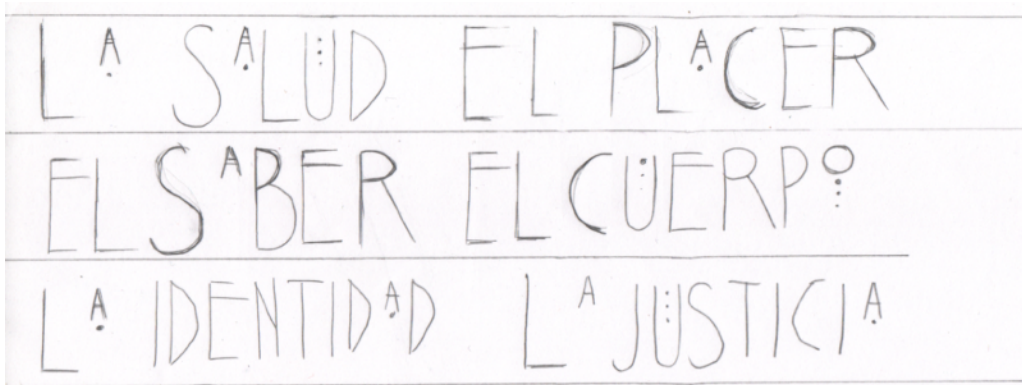 LA SALUD EL PLACER
EL SABER EL CUERPO
LA IDENTIDAD LA JUSTICIA